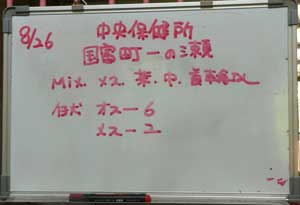 8/26 中央保健所
国富町一の瀬
Mix. メス. 茶. 中. 首輪なし
仔犬 オスー6
メスー2